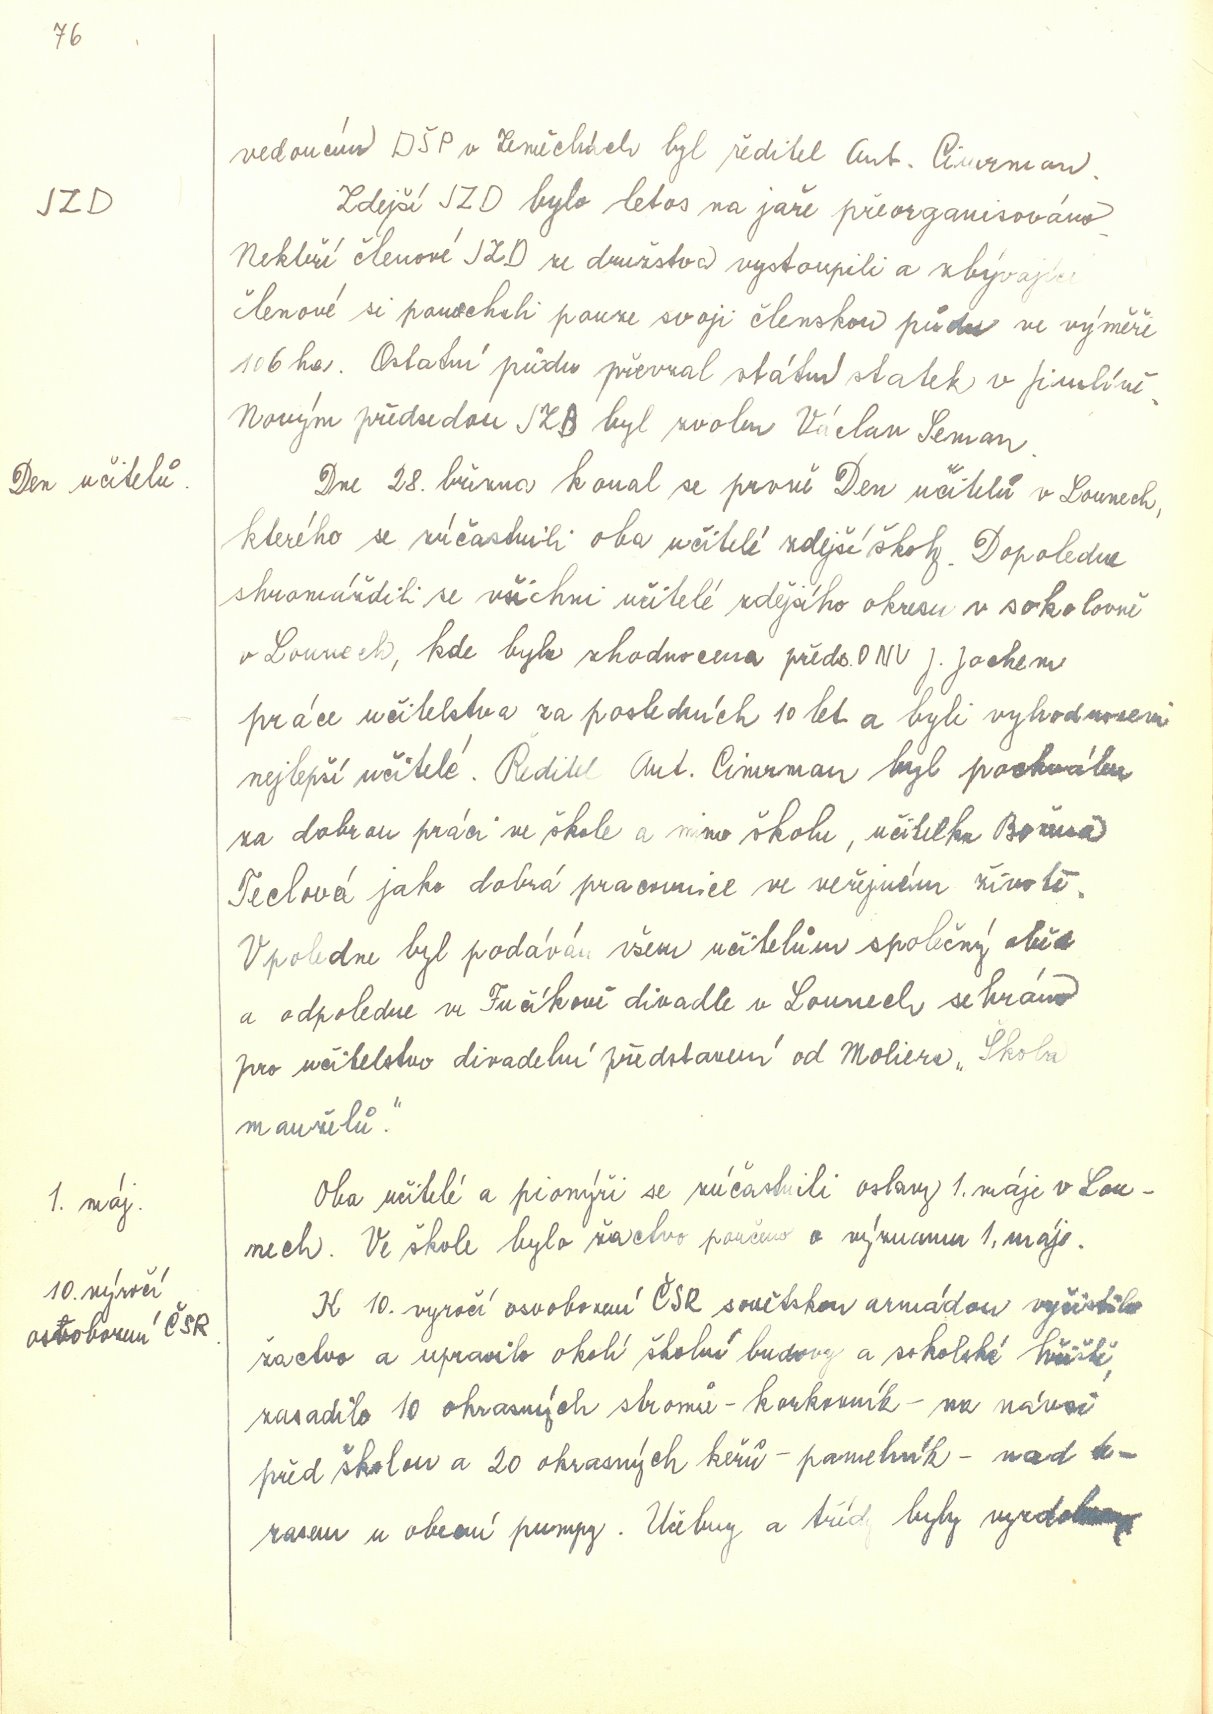 76
vedoucím DŠP v Zeměchách byl ředitel Ant. Cimrman.
JZD
Zdejší JZD bylo letos na jaře přeorganisováno.
Někteří členové JZD ze družstva vystoupili a zbývající
členové si ponechali pouze svoji členskou půdu ve výměře
106 ha. Ostatní půdu převzal státní statek v Jimlíně.
Novým předsedou JZD byl zvolen Václav Seman.
Den učitelů.
Dne 28. března konal se prvně Den učitelů v Lounech,
kterého se zúčastnili oba učitelé zdejší školy. Dopoledne
shromáždili se všichni učitelé zdejšího okresu v sokolovně
v Lounech, kde byla zhodnocena předs. ONV J. Jochem
práce učitelstva za posledních 10 let a byli vyhodnoceni
nejlepší učitelé. Ředitel Ant. Cimrman byl pochválen
za dobrou práci ve škole a mimo školu, učitelka Božena
Teclová jako dobrá pracovnice ve veřejném životě.
V poledne byl podáván všem učitelům společný oběd
a odpoledne ve Fučíkově divadle v Lounech sehráno
pro učitelstvo divadelní představení od Moliera „Škola
manželů."
1. máj.
Oba učitelé a pionýři se zúčastnili oslavy 1. máje v Lou-
nech. Ve škole bylo žactvo poučeno o významu 1. máje.
10. výročí
osvobození ČSR.
K 10. vyročí osvobození ČSR sovětskou armádou vyčistilo
žactvo a upravilo okolí školní budovy a sokolské hřiště,
zasadilo 10 okrasných stromů - korkovník - na návsi
před školou a 20 okrasných keřů - pamelník - nad te-
rasou u obecní pumpy. Učebny a třídy byly vyzdobeny